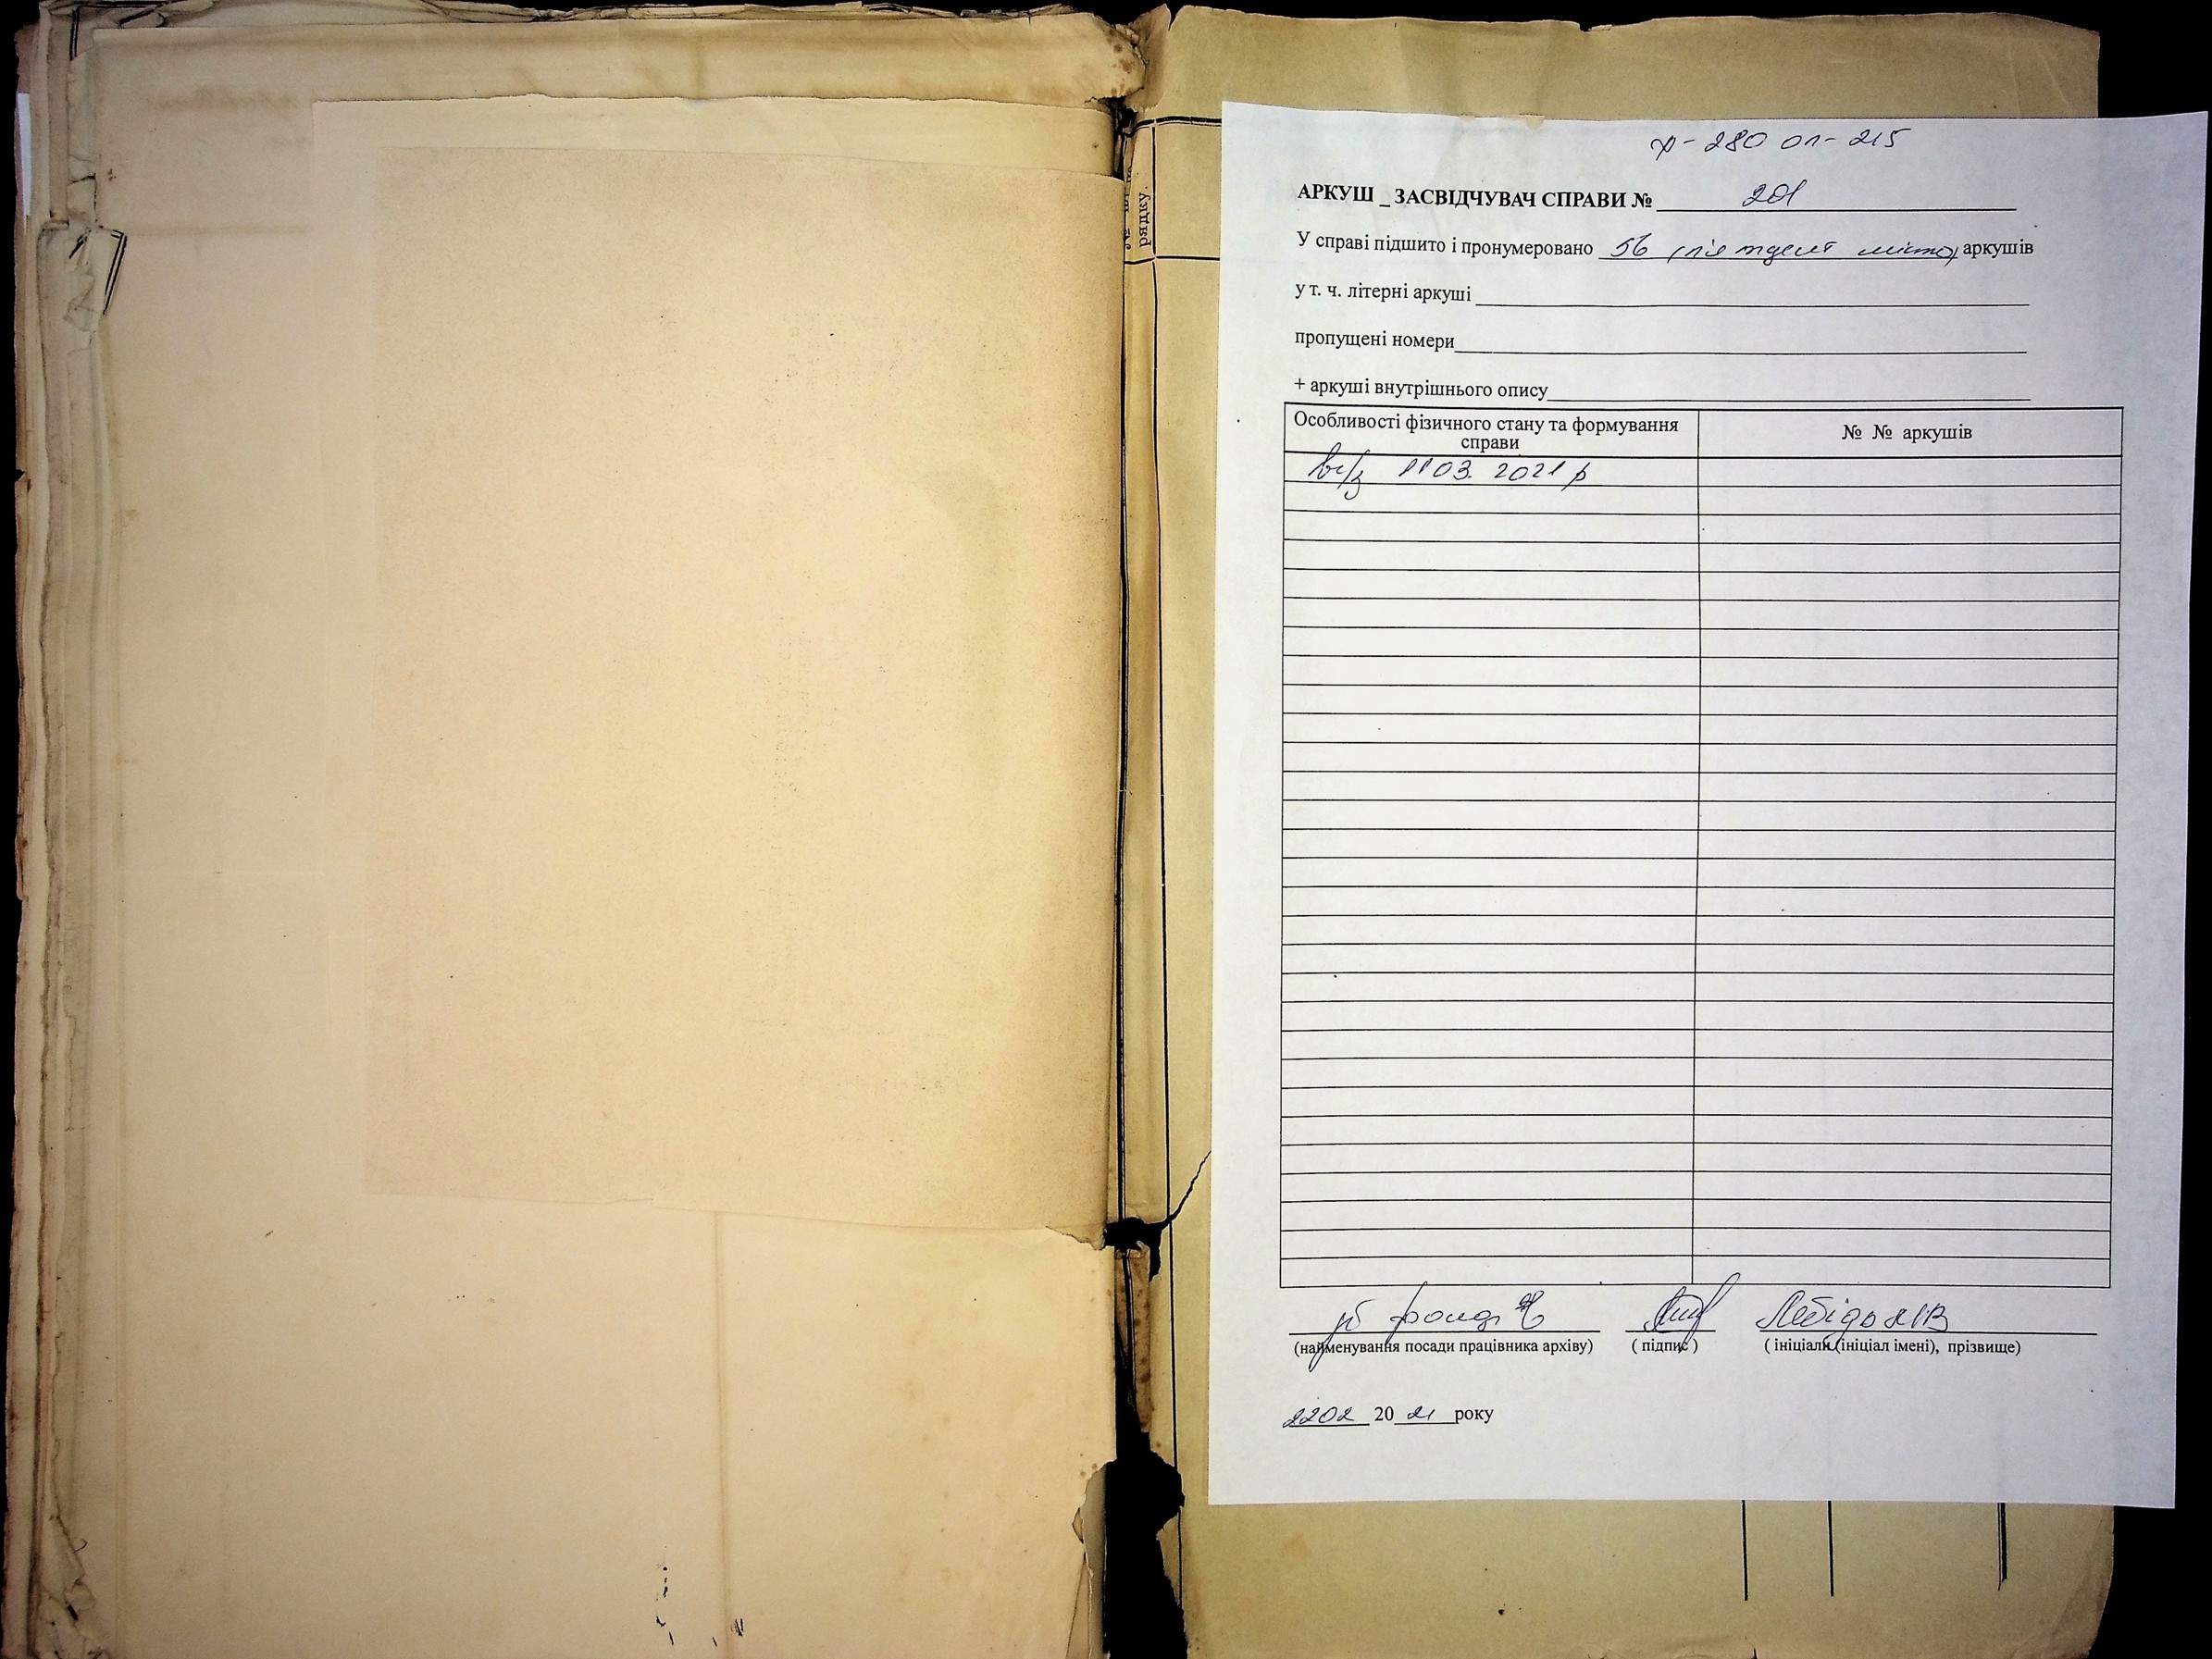 рядку.
ф-280 оп-215
АРКУШ _ ЗАСВІДЧУВАЧ СПРАВИ № 201
У справі підшито і пронумеровано 56 (п'ятдесят шість) аркушів
у т. ч. літерні аркуші
пропущені номери
+ аркуші внутрішнього опису
Особливості фізичного стану та формування справи
№ № аркушів
11 03. 2021 р
фонді
Лебідь
(найменування посади працівника архіву) ( підпис ) ( ініціали (ініціал імені), прізвище)
2202 20 21 року